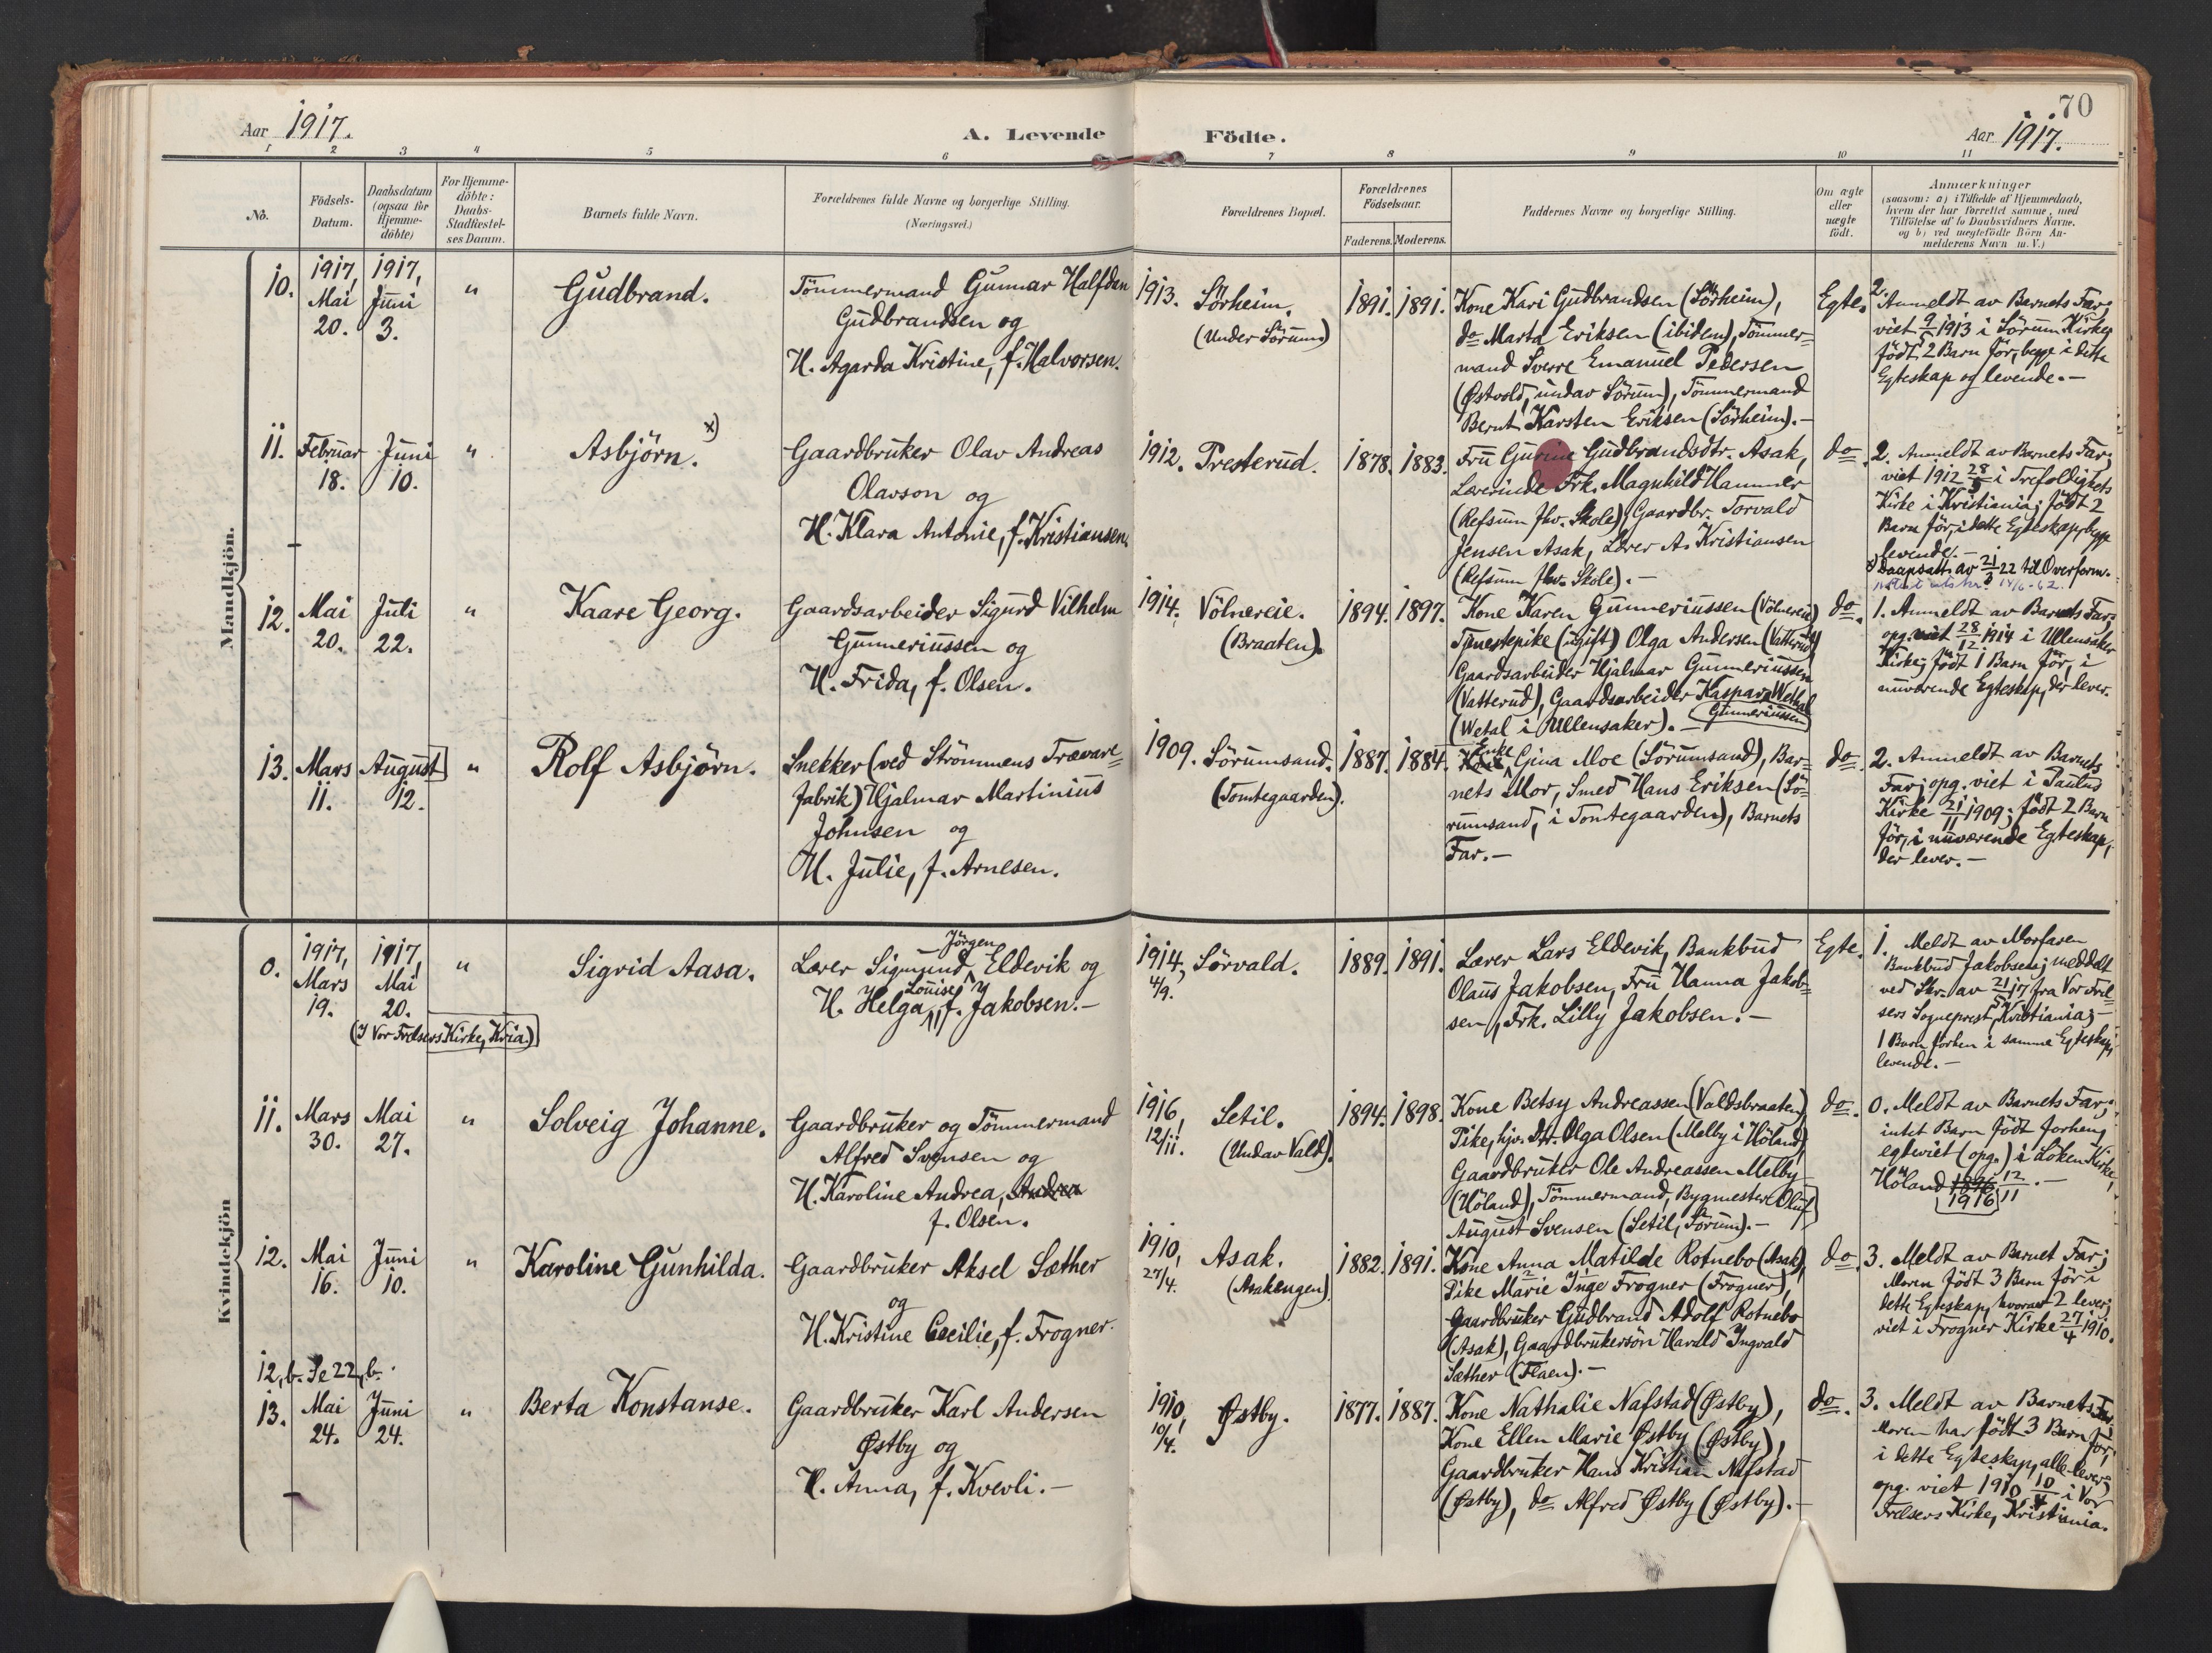 70
Aar 1917.
A. Levende Födte.
Aar 1917.
1 2 3 4 5 6 7 8 9 10 11
No.
Födsels-
Datum.
Daabsdatum
(ogsaa for
Hjemme-
döbte)
For Hjemme-
döbte:
Daabs-
Stadfæstel-
ses Datum.
Barnets fulde Navn.
Forældrenes fulde Navne og borgerlige Stilling.
(Næringsvei.)
Forældrenes Bopæl.
Forældrenes
Födselsaar.
Faderens. Moderens.
Faddernes Navne og borgerlige Stilling.
Om ægte
eller
uægte
födt.
Anmærkninger
(saasom: a) i Tilfælde af Hjemmedaab,
hvem der har forrettet samme, med
Tilföielse af to Daabsvidners Navne.
og b) ved uægtefödte Börn An-
melderens Navn m. V.)
Mandkjön.
10.
1917,
Mai
20.
1917,
Juni
3.
"
Gudbrand.
Tömmermand Gunnar Halfdan
Gudbrandsen og
H. Agarda Kristine, f. Halvorsen.
1913.
Sörheim.
(Under Sörum)
1891. 1891.
Kone Kari Gudbrandsen (Sörheim),
do Marta Eriksen (ibidem), Tömmer=
mand Sverre Emanuel Pedersen
(Østvold, undav Sörum), Tömmermand
Bernt Karsten Eriksen (Sörheim).-
Egte.
2.
Anmeldt av Barnets Far;
viet 9/5 1913 i Sörum Kirke;
födt 2 Barn för, begge i dette
Egteskap og levende.-
11.
Februar
18.
Juni
10.
"
Asbjörn. x)
Gaardbruker Olav Andreas
Olavson og
H. Klara Antonie, f. Kristiansen.
1912.
Presterud.
1878. 1883.
Frü Gurine Gudbrandsdtr. Asak,
Lærerinde Frk. Magnhild Hammer
(Refsum fhv. Skole), Gaardbr. Torvald
Jensen Asak, Lærer A. Kristiansen
(Refsum fhv. Skole).-
do.
2. Anmeldt av Barnets Far;
viet 1912 28/5 i Trefoldighets
Kirke i Kristiania; födt 2
Barn för, i dette Egteskap, begge
levende.-
x) Daapsatt. av 21/3 22 til Overform.
14/6-62.
12.
Mai
20.
Juli
22.
"
Kaare Georg.
Gaardsarbeider Sigurd Vilhelm
Gunneriussen og
H. Frida, f. Olsen.
1914.
Völnereie.
(Braaten).
1894. 1897.
Kone Karen Gunneriussen (Völnereie)
Tjenestepike (ugift) Olga Andersen (Vatterud)
Gaardsarbeider Hjalmar Gunneriussen
(Vatterud), Gaardsarbeider Kaspar Wethal
(Wetal i Ullensaker).- Gunneriussen
do.
1. Anmeldt av Barnets Far;
opg. viet 28/12 1914 i Ullensaker
Kirke; födt 1 Barn för, i
nuværende Egteskap, der lever.
13.
Mars
11.
August
12.
"
Rolf Asbjörn.
Snekker (ved Strömmens Trævare=
fabrik) Hjalmar Martinius
Johnsen og
H. Julie, f. Arnesen.
1909.
Sörumsand.
(Tomtegaarden).
1887. 1884.
Enke
Kone Gina Moe (Sörumsand), Bar=
nets Mor, Smed Hans Eriksen (Sö=
rumsand, i Tomtegaarden), Barnets
Far.-
do.
2. Anmeldt av Barnets
Far; opg. viet i Paulus
Kirke 21/11 1909; födt 2 Barn
för, i nuværende Egteskap,
der lever.-
Kvindekjön
0.
1917,
Mars
19.
1917,
Mai
20.
(I Vor Frelsers Kirke, Kria.)
"
Sigrid Aasa.
Jörgen
Lærer Sigmund Eldevik og
Louise
H. Helga, f. Jakobsen.-
1914,
4/9.
Sörvald.
1889. 1891.
Lærer Lars Eldevik, Bankbud
Olaus Jakobsen, Frü Hanna Jakob=
sen, Frk. Lilly Jakobsen.-
Egte.
1. Meldt av Morfaren
Bankbud Jakobsen; meddelt
ved Skr. av 21/5 17 fra Vor Frel=
sers Sogneprest, Kristiania;-
1 Barn forhen i samme Egteskap,
levende.-
11.
Mars
30.
Mai
27.
"
Solveig Johanne.
Gaardbruker og Tömmermand
Alfred Svensen og
H. Karoline Andrea, Andrea
f. Olsen.
1916,
12/11.
Setil.
(Undav Vald).
1894. 1898.
Kone Betsy Andreassen (Valdsbraaten)
Pike, hjv. Dtr. Olga Olsen (Melby i Höland),
Gaardbruker Ole Andreassen Melby
(Höland), Tömmermand, Bygmester Oluf
August Svensen (Setil, Sörum).-
do.
0. Meldt av Barnets Far;
intet Barn födt forhen;
egteviet (opg.) i Löken Kirke,
Höland 1896 12/11.-
1916
12.
Mai
16.
Juni
10.
"
Karoline Gunhilda.
Gaardbruker Aksel Sæther
og
H. Kristine Cecilie, f. Frogner.
1910,
27/4.
Asak.
(Asakengen)
1882. 1891.
Kone Anna Matilde Rotnebo (Asak),
Pike Marie Inge Frogner (Frogner),
Gaardbruker Gudbrand Adolf Rotnebo
(Asak), Gaardbrukersön Harald Ingvald
Sæther (Flaen).-
do.
3. Meldt av Barnet Far;
Moren födt 3 Barn för i
dette Egteskap, hvorav 2 lever;
viet i Frogner Kirke 27/4 1910.
12, b. Se 22, b.
13.
Mai
24.
Juni
24.
"
Berta Konstanse.
Gaardbruker Karl Andersen
Østby og
H. Anna, f. Kverli.-
1910,
10/4.
Østby.
1877. 1887.
Kone Nathalie Nafstad (Østby),
Kone Ellen Marie Østby (Østby),
Gaardbruker Hans Kristian Nafstad
(Østby), do Alfred Østby (Østby).-
do.
3. Meldt av Barnets Far;
Moren har födt 3 Barn för,
i dette Egteskap, alle lever;
opg. viet 1910 10/4 i Vor
Frelsers Kirke, Kristiania.